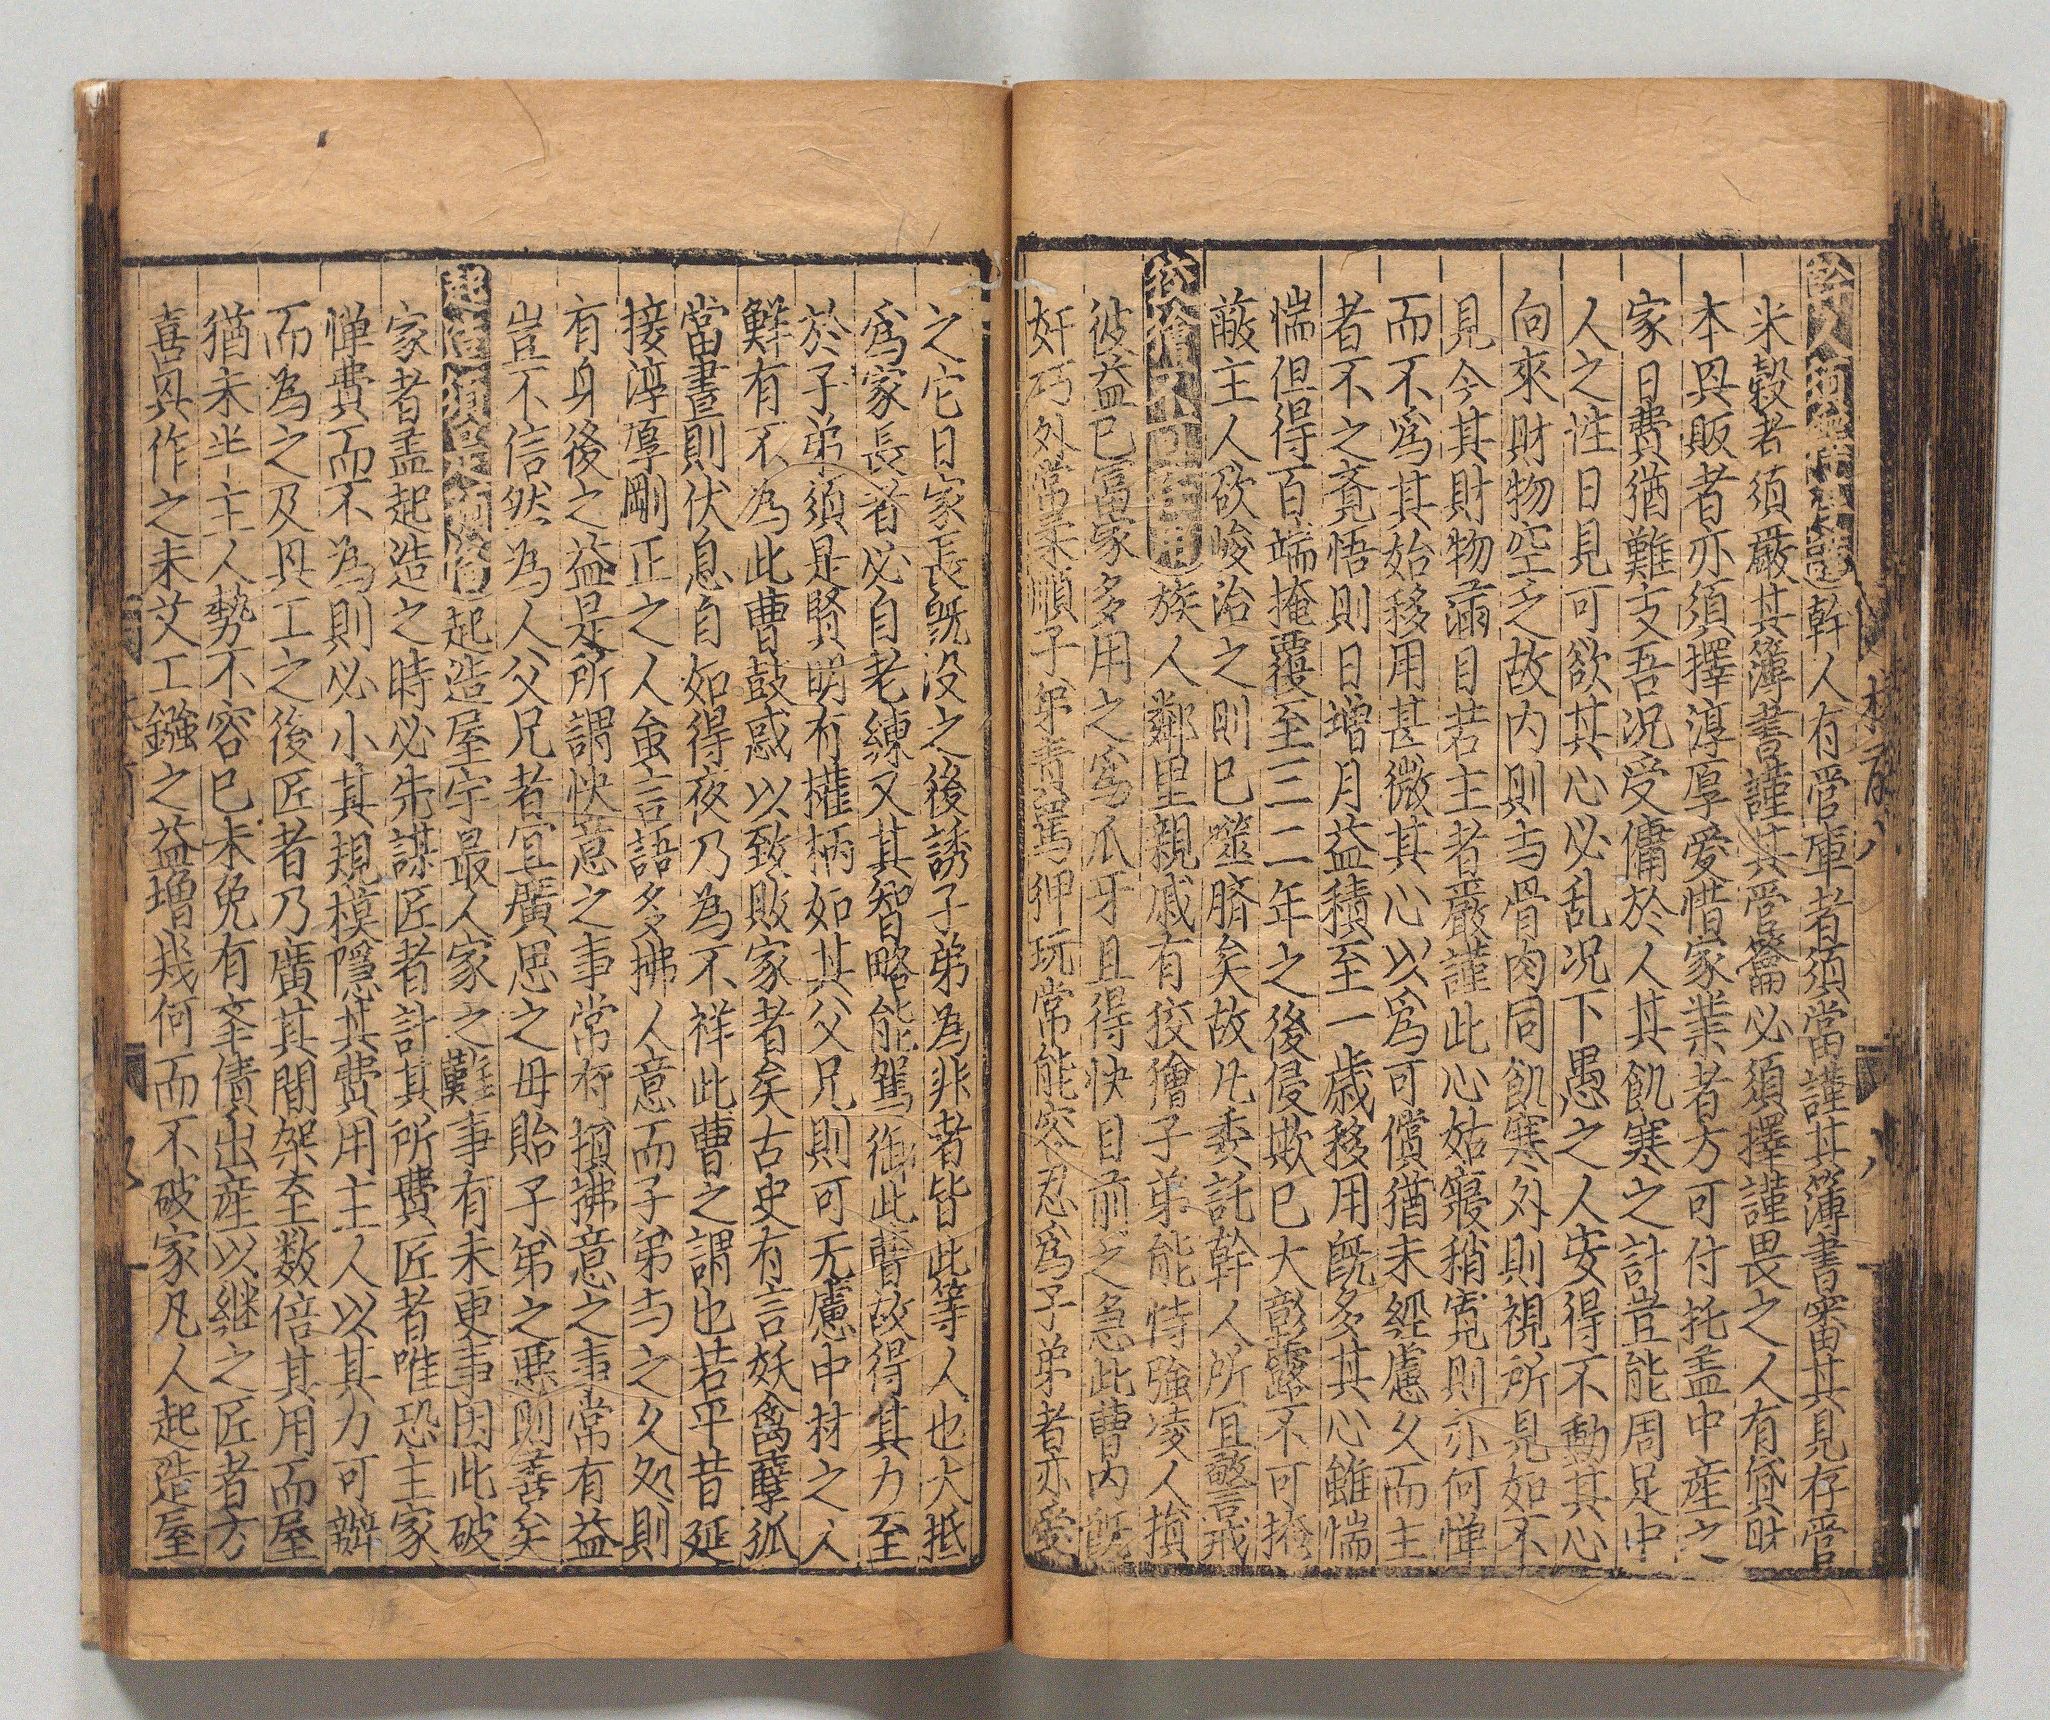 幹人有管庫者須當謹其簿書審其見存管
米穀者須嚴其簿書謹其管籥必須擇謹畏之人有貸財
本㒷販者亦須擇淳厚愛惜家業者方可付托盖中産之
家日費猶難支吾况受傭於人其飢寒之計豈能周足中
人之性日見可欲其心必乱况下愚之人安得不動其心
向來財物空乏故内則与骨肉同飢寒外則視所見如不
見今其財物滿目若主者嚴謹此心姑寢稍寛則亦何憚
而不爲其始移用甚微其心以爲可償猶未經慮久而主
者不之覺悟則日增月益積至一歲移用旣多其心雖惴
惴但得百端掩覆至三二年之後侵欺巳大彰露不可掩
蔽主人欲峻治之則巳噬臍矣故凡委託幹人所宜警戒
狡獪不可任用族人鄰里親戚有狡獪子弟能恃強凌人損
彼益巳富家多用之爲爪牙且得快目前之急此曹内旣
奸巧外常柔順子弟責罵狎玩常能容忍爲子弟者亦愛
之它日家長旣没之後誘子弟為非者皆此等人也大抵
爲家長者必自老練又其智略能駕御此曹故得其力至
於子弟須是賢明有權柄如其父兄則可无慮中材之人
鮮有不為此曹鼓惑以致敗家者矣古史有言妖禽孽狐
當晝則伏息自如得夜乃為不祥此曹之謂也若平昔延
接淳厚剛正之人虽言語多拂人意而子弟与之久処則
有身後之益是所謂快意之事常有損拂意之事常有益
豈不信然為人父兄者宜廣思之毋貽子弟之悪則善矣
起造須量力起造屋宇最人家之難事有未更事因此破
家者盖起造之時必先謀匠者計其所費匠者唯恐主家
憚費而不為則必小其規模隱其費用主人以其力可辦
而為之及具工之後匠者乃廣其間架至数倍其用而屋
猶未半主人勢不容巳未免有奎債出産以継之匠者方
喜㒷作之未艾工鏹之益增㡬何而不破家凡人起造屋